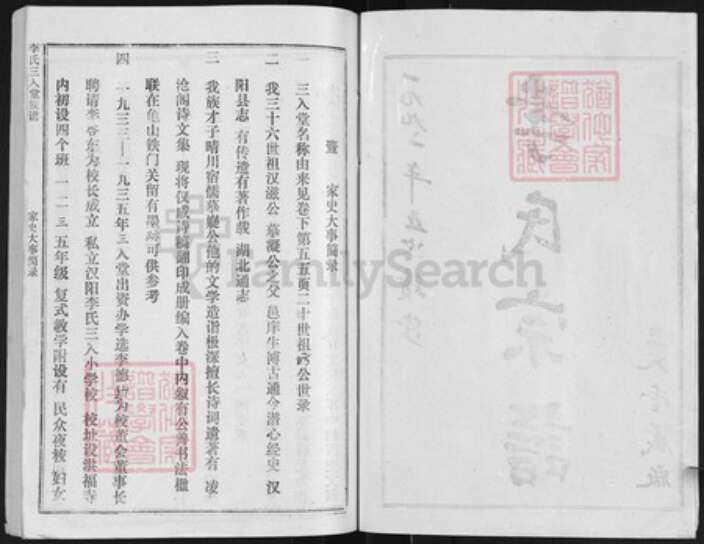 李氏三入堂族谱
家史大事简录
暨 家史大事简录
一 三入堂名称由来见卷下第五五页二十世祖 公世录
二 我三十六世祖汉滋公 摹凝公之父 邑庠生博古通今潜心经史 汉
阳县志 有传遗有著作载 湖北通志
三 我族才子晴川宿儒摹凝公他的文学造诣极深擅长诗词遗著有 凌
沧阁诗文集 现将仅成诗稿翻印成册编入卷中内叙有公善书法楹
联在龟山铁门关留有墨迹可供参考
四 一九三三—一九三五年三入堂出资办学选李德 为校董会董事长
聘请李 东为校长成立 私立汉阳李氏三入小学校 校址设洪福寺
内初设四个班 一二三五年级 复式教学附设有 民众夜校 妇女
一九九二年
氏
宗
譜
FamilySearch